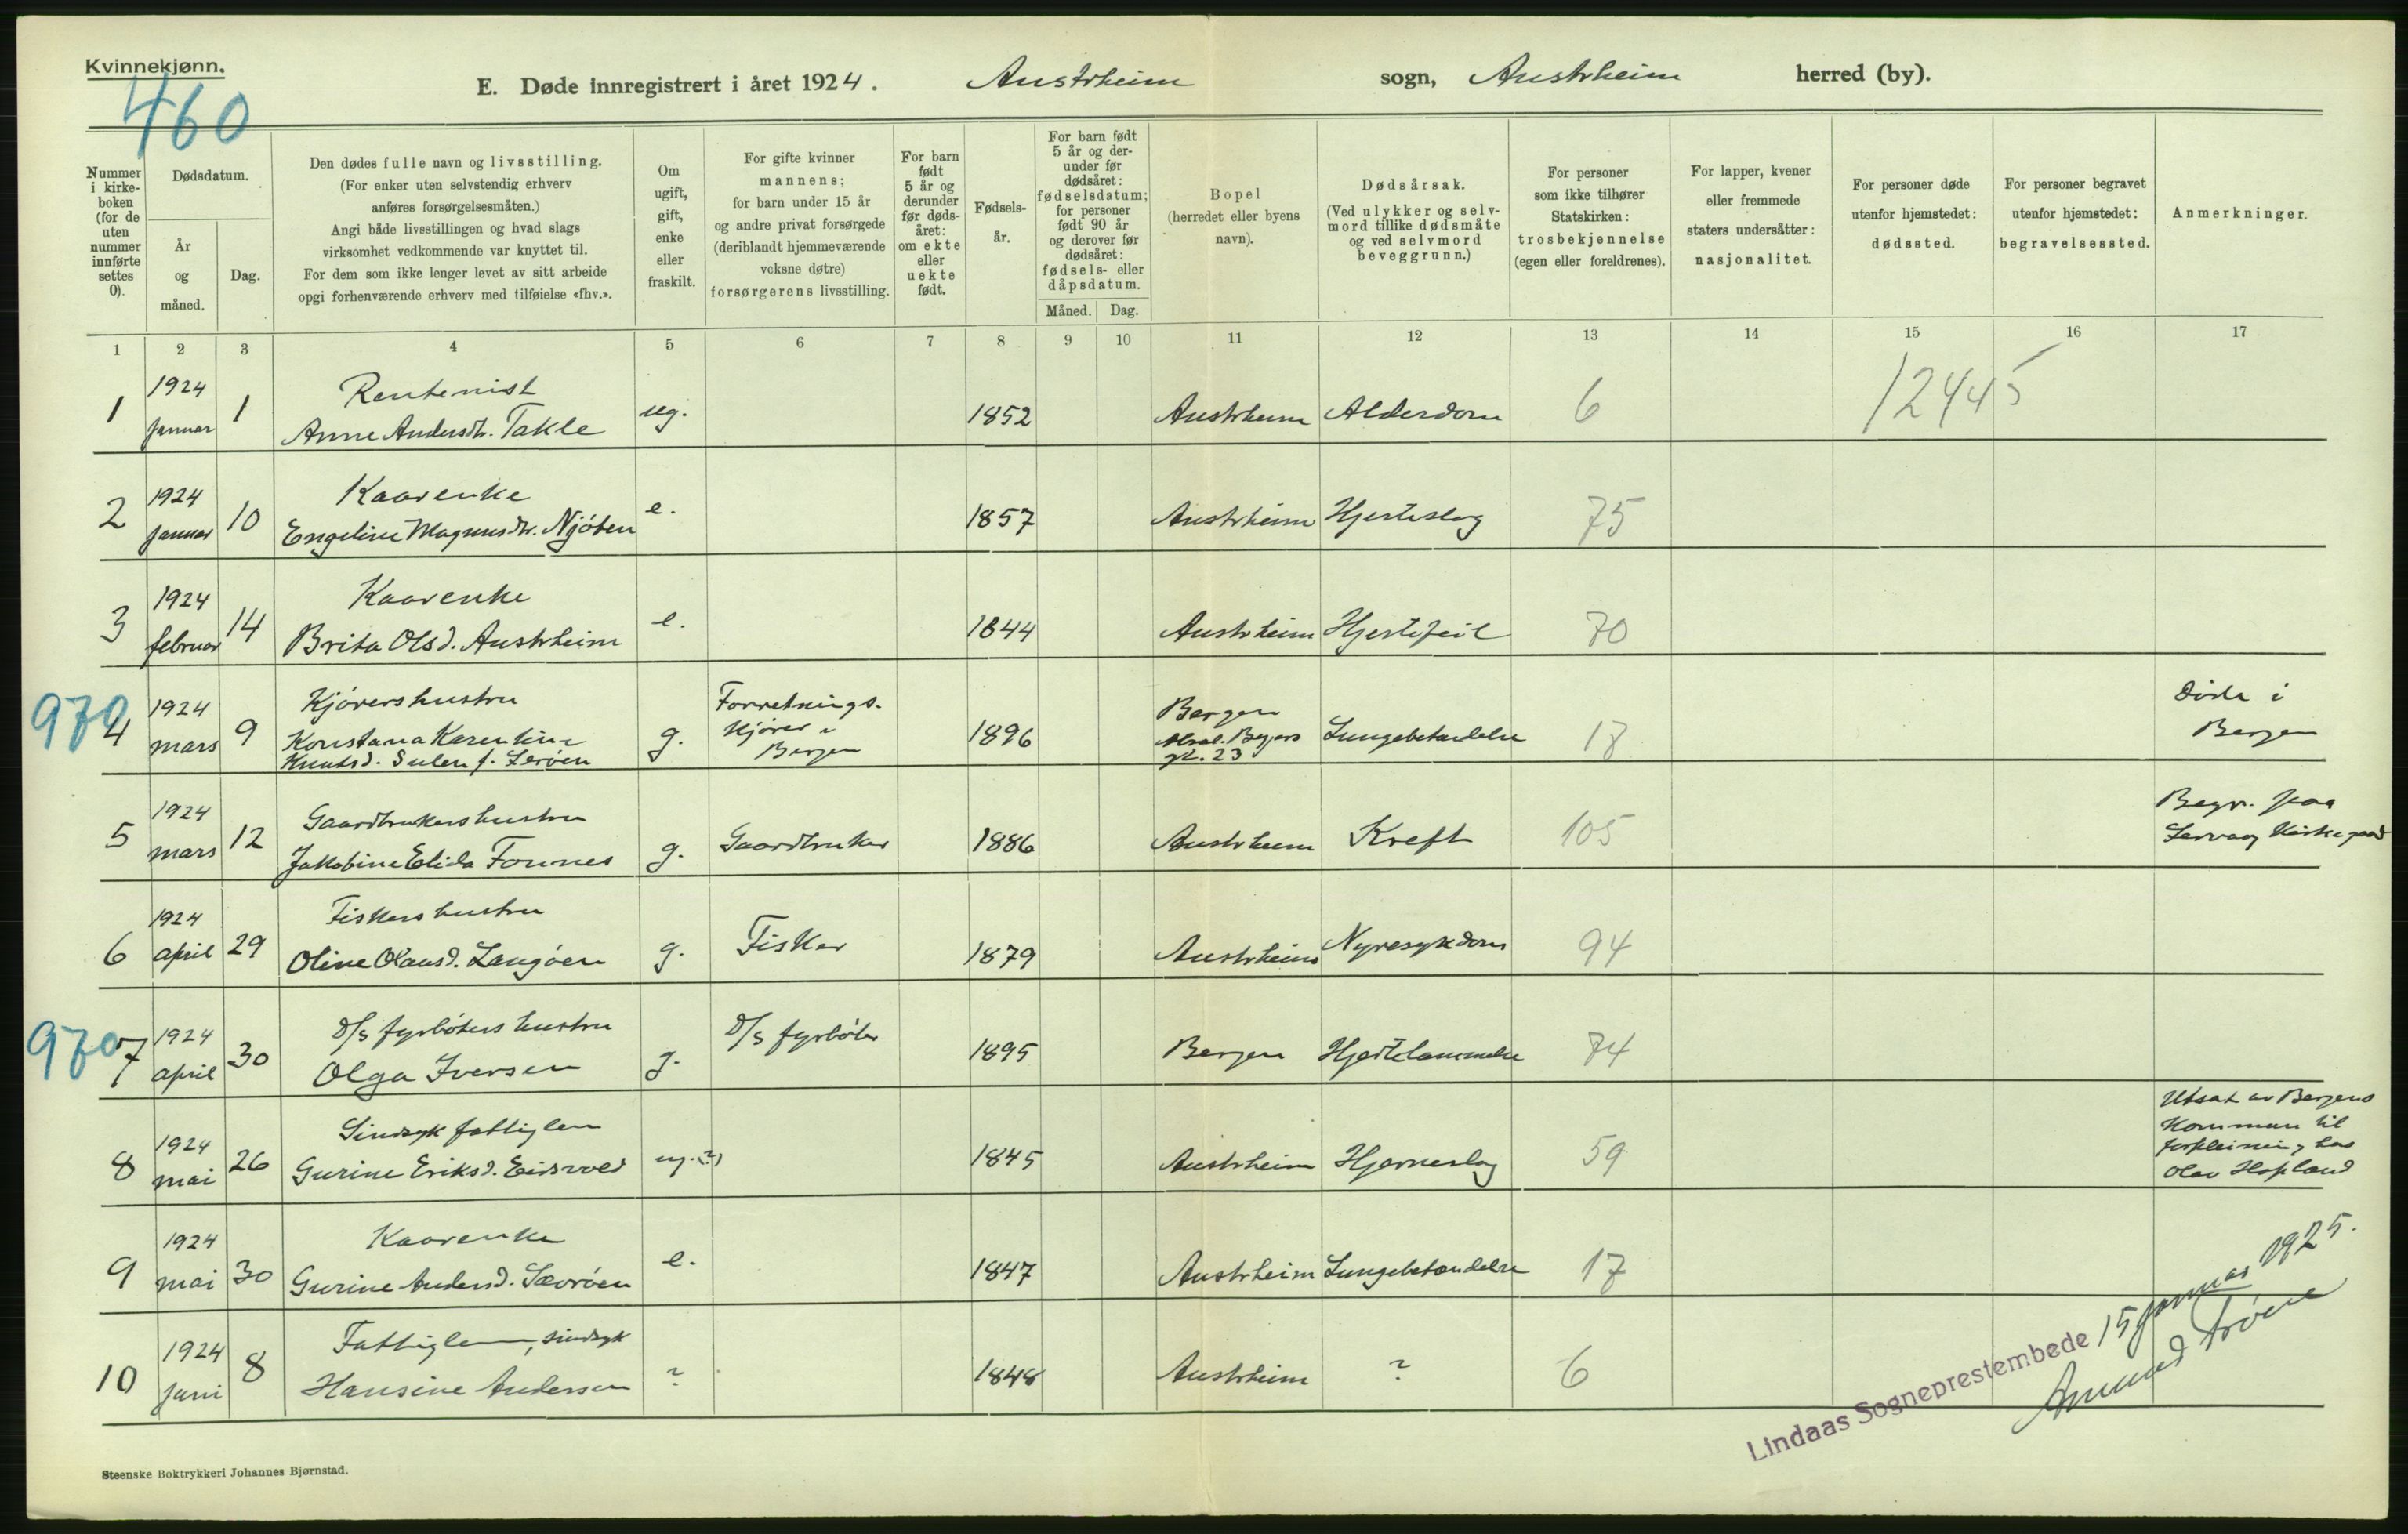 Kvinnekjønn.
460
E. Døde innregistrert i året 1924. Austrheim sogn, Austrheim herred (by).
Nummer i kirkeboken (for de uten nummer innførte settes 0).
Dødsdatum.
År og måned.
Dag.
Den dødes fulle navn og livsstilling.
(For enker uten selvstendig erhverv
anføres forsørgelsesmåten.)
Angi både livsstillingen og hvad slags
virksomhet vedkommende var knyttet til.
For dem som ikke lenger levet av sitt arbeide
opgi forhenværende erhverv med tilføielse «fhv.».
Om ugift, gift, enke eller fraskilt.
For gifte kvinner
mannens;
for barn under 15 år
og andre privat forsørgede
(deriblandt hjemmeværende
voksne døtre)
forsørgerens livsstilling.
For barn født 5 år og derunder før dødsåret: om ekte eller uekte født.
Fødselsår.
For barn født 5 år og derunder før dødsåret: fødselsdatum; for personer født 90 år og derover før dødsåret: fødsels- eller dåpsdatum.
Måned. Dag.
Bopel
(herredet eller byens
navn).
Dødsårsak.
(Ved ulykker og selvmord tillike dødsmåte og ved selvmord beveggrunn.)
For personer
som ikke tilhører
Statskirken:
trosbekjennelse
(egen eller foreldrenes).
For lapper, kvener
eller fremmede
staters undersåtter:
nasjonalitet.
For personer døde
utenfor hjemstedet:
dødssted.
For personer begravet
utenfor hjemstedet:
begravelsessted.
Anmerkninger.
1 2 3 4 5 6 7 8 9 10 11 12 13 14 15 16 17
1 1924 januar 1 Rentenist
Anne Andersdtr. Takle ug. 1852 Austrheim Alderdom 6 12445
2 1924 januar 10 Kaarenke
Engeline Magnusdtr. Njøten e. 1857 Austrheim Hjerteslag 75
3 1924 februar 14 Kaarenke
Brita Olsd. Austrheim e. 1844 Austrheim Hjertefeil 70
970
4 1924 mars 9 Kjørershustru
Konstana Karentine
Knutsd. Sulen f. Lerøen g. Forretnings-
kjører i
Bergen 1896 Bergen
gt. 23 Lungebetændelse 18 Døde i
Bergen
5 1924 mars 12 Gaardbrukershustru
Jakobine Elida Fonnes g. Gaardbruker 1886 Austrheim Kreft 105 Begr. paa
kirkegaard
6 1924 april 29 Fiskershustru
Oline Olausd. Langøen g. Fisker 1879 Austrheim Nyresykdom 94
970
7 1924 april 30 D/s fyrbøters hustru
Olga Iversen g. D/s fyrbøter 1895 Bergen Hjertelammelse 74
8 1924 mai 26 Sindsyk fattiglem
Gurine Eriksd. Eidsvold ug. (?) 1845 Austrheim Hjerneslag 59 Utsat av Bergens
Kommun til
forpleining hos
Olav Hopland
9 1924 mai 30 Kaarenke
Gurine Andersd. Sævrøen e. 1847 Austrheim Lungebetændelse 17
10 1924 juni 8 Fattiglem, sindsyk
Hansine Andersen ? 1848 Austrheim ? 6
Lindaas Sogneprestembede 15 januar 1925.
Steenske Boktrykkeri Johannes Bjørnstad.